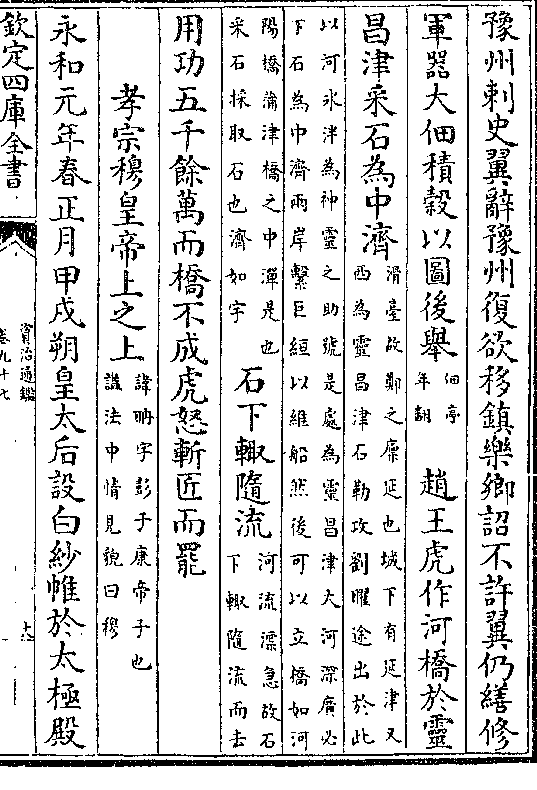 豫州刺史翼辭豫州復欲移鎮樂鄉詔不許翼仍繕修
軍器大佃積穀以圖後舉
佃亭
年翻
趙王虎作河橋於靈
昌津采石為中濟
滑臺故鄭之廩延也城下有延津又
西為靈昌津石勒攻劉曜途出於此
以河氷泮為神靈之助號是處為靈昌津大河深廣必
下石為中濟兩岸繫巨絙以維船然後可以立橋如河
陽橋蒲津橋之中潬是也
采石採取石也濟如字
石下輙隨流
河流漂急故石
下輙隨流而去
用功五千餘萬而橋不成虎怒斬匠而罷
孝宗穆皇帝上之上
諱聃字彭子康帝子也
諡法中情見貌曰穆
永和元年春正月甲戌朔皇太后設白紗帷於太極殿
欽定四庫全書
資治通鑑
卷九十七